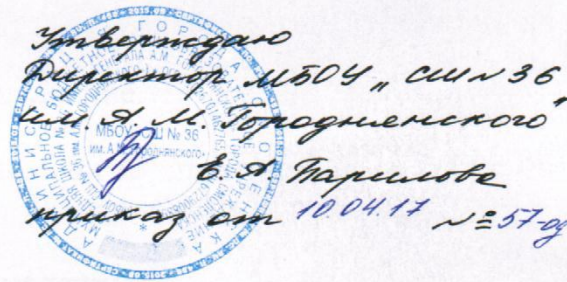 Утверждаю
Директор МБОУ „СШ №36
им. А.М. Городнянского"
Е.А. Парилова
приказ от 10.04.17 №57-од
МБОУ СШ № 36
им. А.М. Городнянского